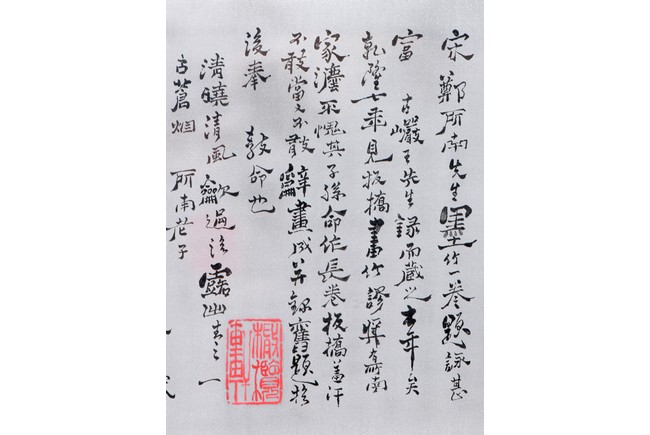 宋鄭所南先生墨竹一卷題詠甚
富 古巖王先生録而藏之年矣
乾隆七年見板橋畫竹謬南
家灋不愧其子孫命作長卷板橋羞汗
不敢當又不敢辭畫成並録舊題於
後奉 教命也
清曉清風過後露幽
古蒼烟 所南老子